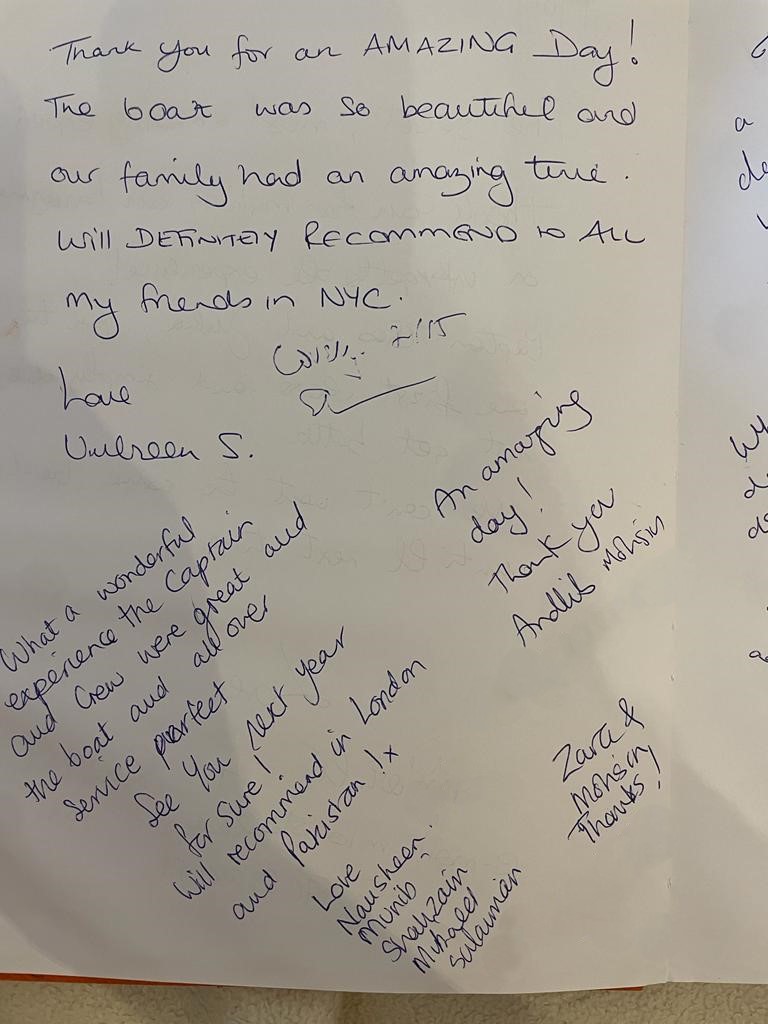 Thank you for an AMAZING Day!
The boat was so beautiful and
our family had an amazing time.
Will DEFINITELY RECOMMEND to ALL
my friends in NYC.
Love
Umbreen S.
An amazing
day!
Thank you
Andlib Mohsin
What a wonderful
experience the Captain
and Crew were great and
the boat and all over
Service perfect
See you next year
for sure!
Will recommend in London
and Pakistan!x
Love
Nausheen.
Munib
Shahzain
Sulaiman
Zara &
Mohsin
Thanks!